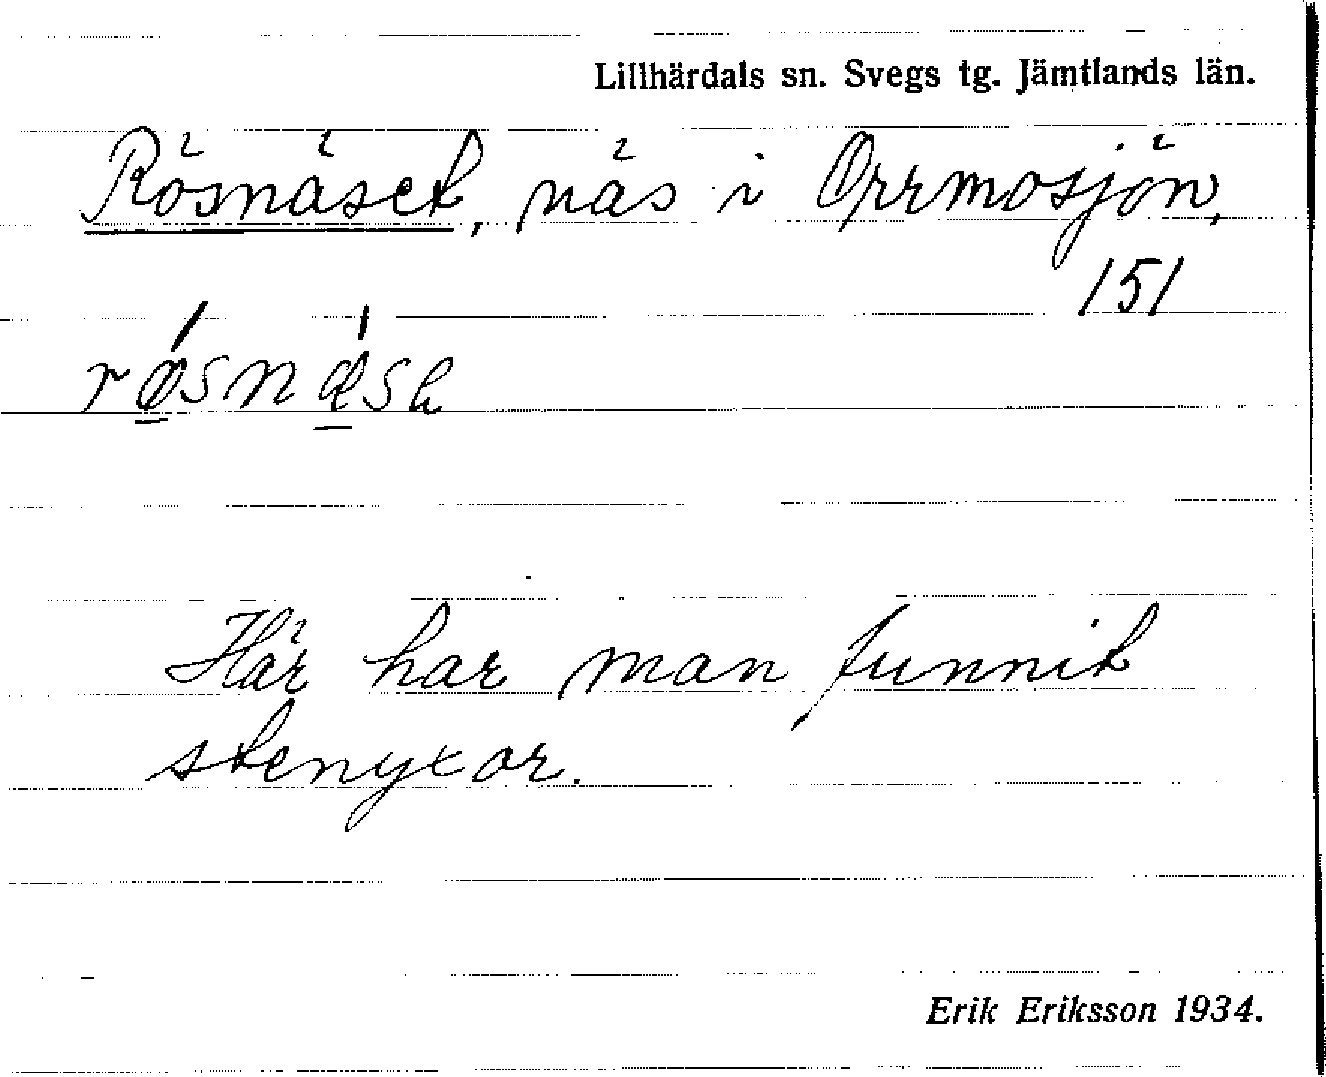 Lillhärdals sn. Svegs tg. Jämtlands län.
Rösnäset, näs i Orrmosjön,
151
Här har man funnit
stenyxor.
Erik Eriksson 1934.